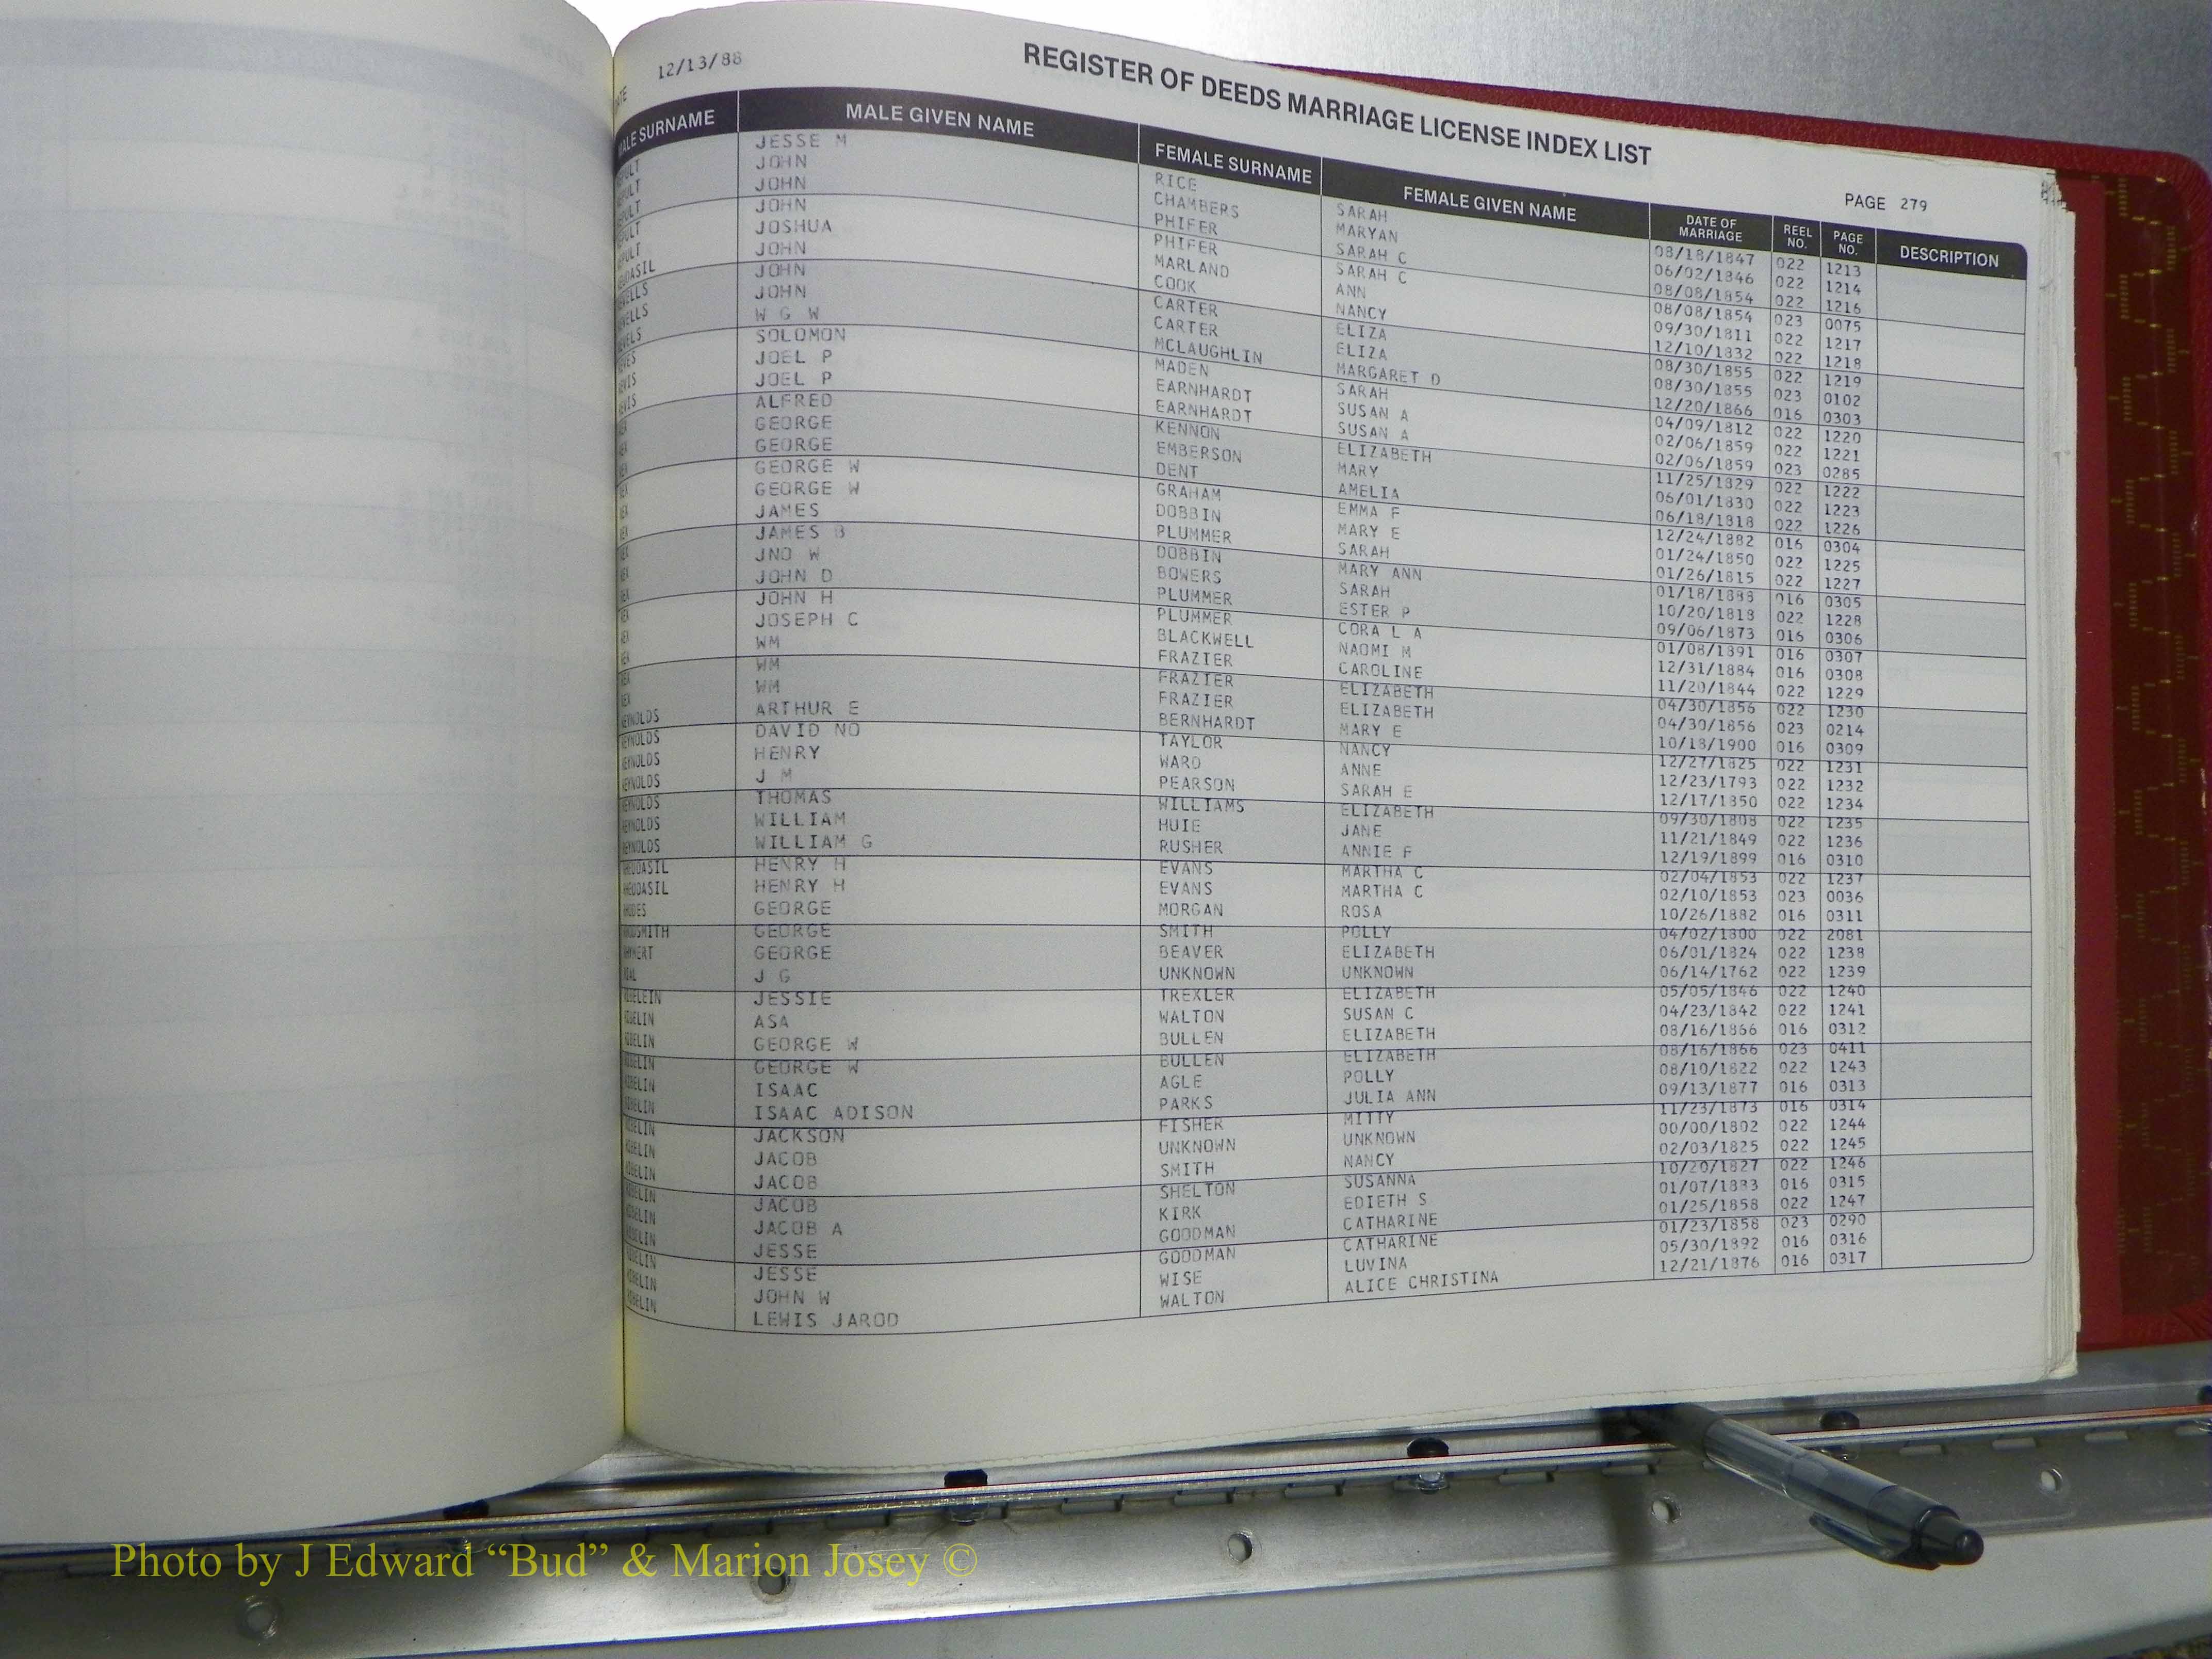 DATE 12/13/88 REGISTER OF DEEDS MARRIAGE LICENSE INDEX LIST PAGE 279
MALE SURNAME MALE GIVEN NAME FEMALE SURNAME FEMALE GIVEN NAME DATE OF MARRIAGE REEL NO. PAGE NO. DESCRIPTION
JESSE M RICE SARAH 08/18/1847 022 1213
JOHN CHAMBERS MARYAN 06/02/1846 022 1214
JOHN PHIFER SARAH C 08/08/1854 022 1216
JOHN PHIFER SARAH C 08/08/1854 023 0075
JOSHUA MARLAND ANN 09/30/1811 022 1217
JOHN COOK NANCY 12/10/1832 022 1218
JOHN CARTER ELIZA 08/30/1855 022 1219
JOHN CARTER ELIZA 08/30/1855 023 0102
W G W MCLAUGHLIN MARGARET D 12/20/1866 016 0303
SOLOMON MADEN SARAH 04/09/1812 022 1220
JOEL P EARNHARDT SUSAN A 02/06/1859 022 1221
JOEL P EARNHARDT SUSAN A 02/06/1859 023 0285
ALFRED KENNON ELIZABETH 11/25/1829 022 1222
GEORGE EMBERSON MARY 06/01/1830 022 1223
GEORGE DENT AMELIA 06/18/1818 022 1226
GEORGE W GRAHAM EMMA F 12/24/1882 016 0304
GEORGE W DOBBIN MARY E 01/24/1850 022 1225
JAMES PLUMMER SARAH 01/26/1815 022 1227
JAMES B DOBBIN MARY ANN 01/18/1888 016 0305
JNO W BOWERS SARAH 10/20/1818 022 1228
JOHN D PLUMMER ESTER P 09/06/1873 016 0306
JOHN H PLUMMER CORA L A 01/08/1891 016 0307
JOSEPH C BLACKWELL NAOMI M 12/31/1884 016 0308
WM FRAZIER CAROLINE 11/20/1844 022 1229
WM FRAZIER ELIZABETH 04/30/1856 022 1230
WM FRAZIER ELIZABETH 04/30/1856 023 0214
REYNOLDS ARTHUR E BERNHARDT MARY E 10/18/1900 016 0309
REYNOLDS DAVID NO TAYLOR NANCY 12/27/1825 022 1231
REYNOLDS HENRY WARD ANNE 12/23/1793 022 1232
REYNOLDS J M PEARSON SARAH E 12/17/1850 022 1234
REYNOLDS THOMAS WILLIAMS ELIZABETH 09/30/1808 022 1235
REYNOLDS WILLIAM HUIE JANE 11/21/1849 022 1236
REYNOLDS WILLIAM G RUSHER ANNIE F 12/19/1899 016 0310
RHEUDASIL HENRY H EVANS MARTHA C 02/04/1853 022 1237
RHEUDASIL HENRY H EVANS MARTHA C 02/10/1853 023 0036
RHODES GEORGE MORGAN ROSA 10/26/1882 016 0311
GEORGE SMITH POLLY 04/02/1800 022 2081
GEORGE BEAVER ELIZABETH 06/01/1824 022 1238
J G UNKNOWN UNKNOWN 06/14/1762 022 1239
JESSIE TREXLER ELIZABETH 05/05/1846 022 1240
ASA WALTON SUSAN C 04/23/1842 022 1241
GEORGE W BULLEN ELIZABETH 08/16/1866 016 0312
GEORGE W BULLEN ELIZABETH 08/16/1866 023 0411
ISAAC AGLE POLLY 08/10/1822 022 1243
ISAAC ADISON PARKS JULIA ANN 09/13/1877 016 0313
JACKSON FISHER MITTY 11/23/1873 016 0314
JACOB UNKNOWN UNKNOWN 00/00/1802 022 1244
JACOB SMITH NANCY 02/03/1825 022 1245
JACOB SHELTON SUSANNA 10/20/1827 022 1246
JACOB A KIRK EDIETH S 01/07/1883 016 0315
JESSE GOODMAN CATHARINE 01/25/1858 022 1247
JESSE GOODMAN CATHARINE 01/23/1858 023 0290
JOHN W WISE LUVINA 05/30/1892 016 0316
LEWIS JAROD WALTON ALICE CHRISTINA 12/21/1876 016 0317
Photo by J Edward “Bud” & Marion Josey ©